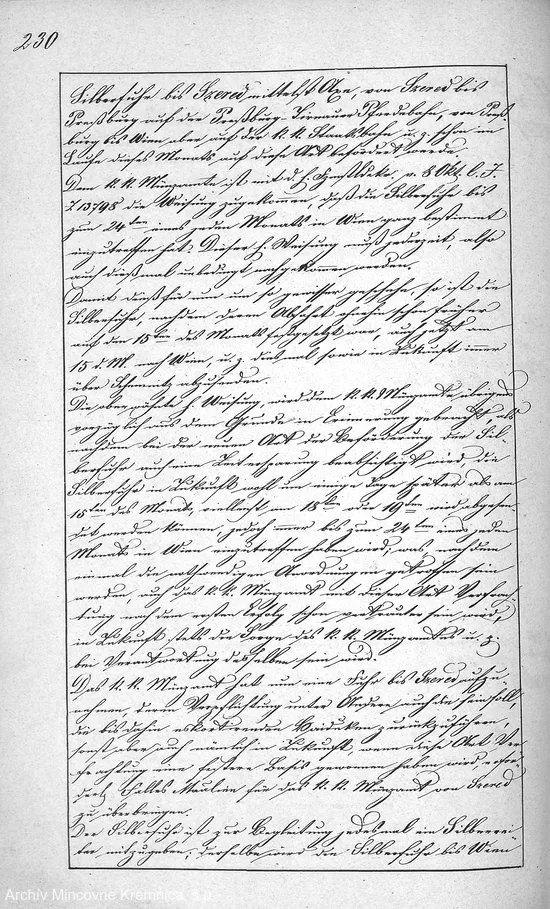 230
Silberfuhr bis Szered mittelst Axe, von Szered bis
Preßburg auf der Preßburg-Tirnauer Pferdebahn, von Preß
burg bis Wien aber auf der k. k. Staatsbahn u. z. schon im
Laufe dieses Monats auf diese Art befördert werde.
Dem k. k. Münzamte ist mit d. h. v. 8 Okt. l. J.
Z 13798 die Weisung zugekommen, daß die Silberfuhr bis
zum 24ten eines jeden Monats in Wien ganz bestimmt
einzutreffen hat. Dieser h. Weisung muß jederzeit, also
auch dießmal unbedingt nachgekommen werden.
Damit dieß für nun um so gewisser geschehe, so ist die
Silberfuhr, nachdem deren Abfahrt ohnehin schon früher
auf den 15ten des Monats festgesetzt war, auch jetzt am
15 d. M. nach Wien, u. z. dießmal sowie in Zukunft immer
über Schemnitz abzusenden.
Die oben zitirte h. Weisung, wird dem k. k. Münzamte übrigens
vorzüglich aus dem Grunde in Erinnerung gebracht, als
nachdem bei der neuen Art der Beförderung der Sil-
berfuhr auch eine Zeitersparung beabsichtigt wird, die
Silberfuhr in Zukunft wohl um einige Tage später als am
15ten des Monats, vielleicht am 18ten oder 19ten wird abgesen-
det werden können, jedoch immer bis zum 24ten eines jeden
Monats in Wien einzutreffen haben wird, was, nachdem
einmal die nothwendigen Anordnungen getroffen sein
werden, auch das k. k. Münzamt mit dieser Art Verfrach-
tung nach dem ersten Erfolg schon vertrauter sein wird,
in Zukunft stets die Sorge des k. k. Münzamtes u. z.
bei Verantwortung desselben sein wird.
Das k. k. Münzamt hat nun eine Fuhr bis Szered aufzu-
nehmen, deren Verpflichtung unter Andern auch die sein soll,
die bis dahin eskortirenden Haiduken zurückzuführen,
sonst aber auch nämlich in Zukunft, wenn diese Art Ver-
frachtung eine festere Basis gewonnen haben wird, erfor-
derl. Falles für das k. k. Münzamt von Szered
zu überbringen.
Der Silberfuhr ist zur Begleitung jedesmal ein
mitzugeben; derselbe wird die Silberfuhr bis Wien
Archív Mincovne Kremnica, š.p.